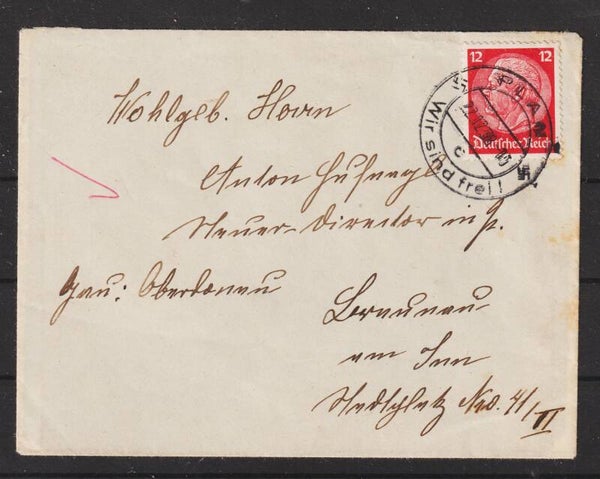 12 12
Deutsches Reich
PLAN
Wir sind frei!
c
Wohlgeb. Herrn
Anton
Steuer-Director i/p.
Gau: Oberdonau
Braunau
am Inn
Stadtplatz No. 41/II